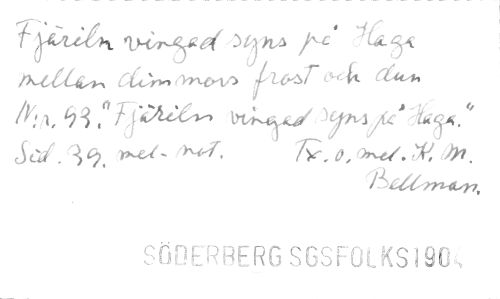 Fjäriln vingad syns på Haga
mellan dimmors frost och dun
N:r. 93. "Fjäriln vingad syns på Haga."
Sid. 39. mel.-not. Tx. o. mel. K. M.
Bellman.
SÖDERBERG SGSFOLKS1904